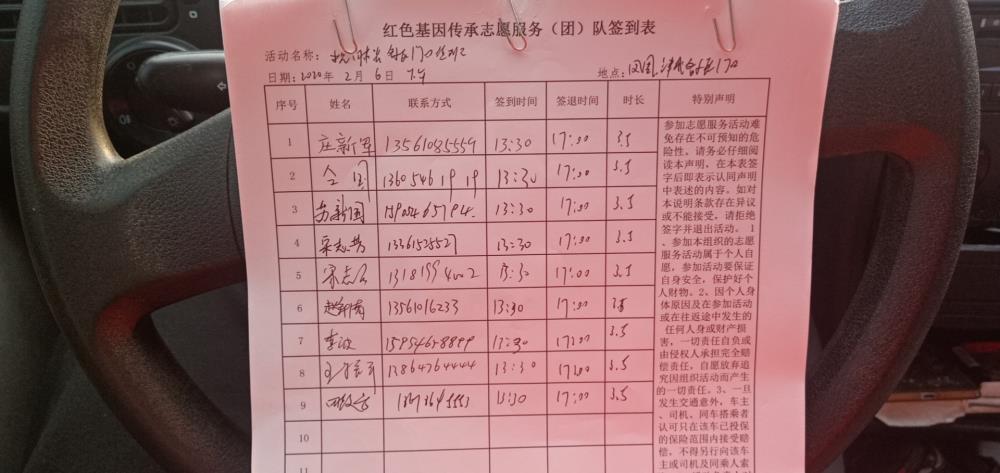 红色基因传承志愿服务（团）队签到表
活动名称：
日期：2020年 2月 6日 下午 地点：
序号 姓名 联系方式 签到时间 签退时间 时长 特别声明
1 庄新军 13561085559 13:30 17:00 3.5
2 13605461919 13:30 17:00 3.5
3 苏新国 13:30 17:00 3.5
4 宋志芳 13:30 17:00 3.5
5 宋志 13:30 17:00 3.5
6 13561016233 13:30 17:00 3.5
7 李波 13:30 17:00 3.5
8 13864764444 13:30 17:00 3.5
9 13:30 17:00 3.5
10
11
参加志愿服务活动难
免存在不可预知的危
险性，请务必仔细阅
读本声明，在本表签
字后即表示认同声明
中表述的内容。如对
本说明条款存在异议
或不能接受，请拒绝
签字并退出活动。 1
、参加本组织的志愿
服务活动属于个人自
愿，参加活动要保证
自身安全，保护好个
人财物。2、因个人身
体原因及在参加活动
或在往返途中发生的
任何人身或财产损
害，一切责任自负或
由侵权人承担完全赔
偿责任，自愿放弃追
究因组织活动而产生
的一切责任。3、一旦
发生交通意外，车主
、司机、同车搭乘者
认可只在该车已投保
的保险范围内接受赔
偿，不得另行向该车
主或司机及同乘人索